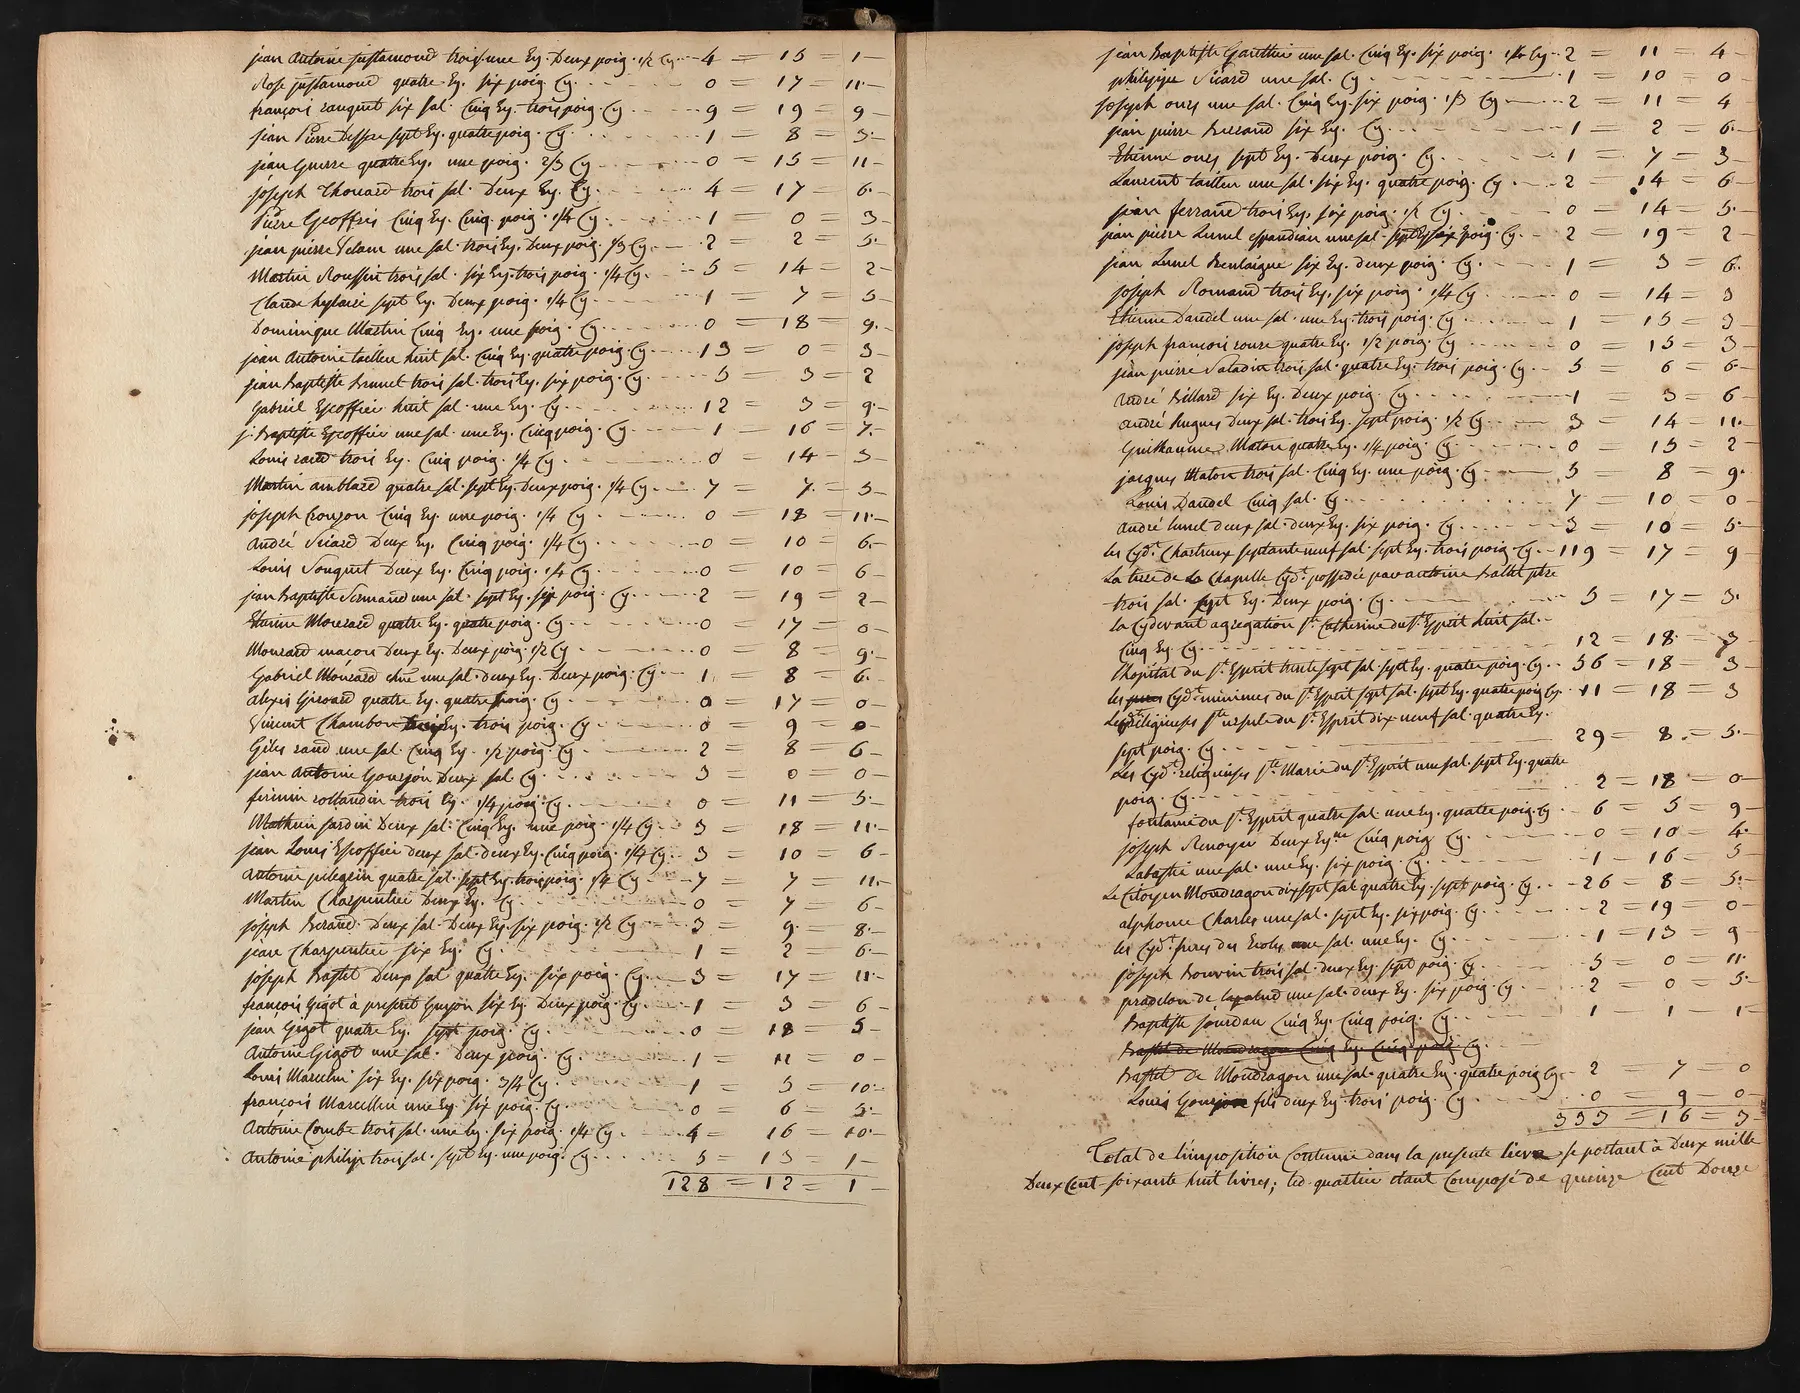 jean Antoine justamond trois une Ey. Deux poig. 1/2 Cy. 4 = 15 = 1
Rose justamond quatre Ey. six poig. Cy. 0 = 17 = 11
françois rauquet six sal. Cinq Ey. trois poig. Cy 9 = 19 = 9
jean Pierre sept Ey. quatre poig. Cy. 1 = 8 = 3
jean Guerre quatre Ey. une poig. 2/3 Cy 0 = 15 = 11
joseph Chouard trois sal. Deux Ey. Cy. 4 = 17 = 6
Pierre Geoffrei Cinq Ey. Cinq poig. 1/4 Cy. 1 = 0 = 3
jean pierre une sal. trois Ey. Deux poig. 1/3 Cy. 2 = 2 = 5
Martin Roussin trois sal. six Ey. trois poig. 1/4 Cy. 5 = 14 = 2
Claude sept Ey. Deux poig. 1/4 Cy 1 = 7 = 5
Dominique Martin Cinq Ey. une poig. Cy. 0 = 18 = 9
jean Antoine taillieu huit sal. Cinq Ey. quatre poig. Cy 13 = 0 = 3
jean Baptiste Brunel trois sal. trois Ey. six poig. Cy. 5 = 3 = 2
Gabriel Escoffier huit sal. une Ey. Cy. 12 = 3 = 9
j. Baptiste Escoffier une sal. une Ey. Cinq poig. Cy 1 = 16 = 7
Louis trois Ey. Cinq poig. 1/4 Cy. 0 = 14 = 3
Martin amblard quatre sal. sept Ey. Deux poig. 1/4 Cy. 7 = 7 = 5
joseph Crouzon Cinq Ey. une poig. 1/4 Cy 0 = 18 = 11
André Sicard Deux Ey. Cinq poig. 1/4 Cy 0 = 10 = 6
Louis Souquet Deux Ey. Cinq poig. 1/4 Cy 0 = 10 = 6
jean Baptiste une sal. sept Ey. six poig. Cy. 2 = 19 = 2
Etienne Monrard quatre Ey. quatre poig. Cy 0 = 17 = 0
Monrard macon Deux Ey. Deux poig. 1/2 Cy 0 = 8 = 9
Gabriel Monrard une sal. deux Ey. Deux poig. Cy 1 = 8 = 6
alexis Girard quatre Ey. quatre poig. Cy 0 = 17 = 0
Vincent Chambon Ey. trois poig. Cy 0 = 9 = 0
Giles raud une sal. Cinq Ey. 1/2 poig. Cy 2 = 8 = 6
jean Antoine Gourjon Deux sal. Cy 3 = 0 = 0
firmin rollandin trois Ey. 1/4 poig. Cy. 0 = 11 = 5
Mathieu jardin Deux sal. Cinq Ey. une poig. 1/4 Cy 3 = 18 = 11
jean Louis Escoffier deux sal. deux Ey. Cinq poig. 1/4 Cy. 3 = 10 = 6
antoine pelegrin quatre sal. sept Ey. trois poig. 1/4 Cy 7 = 7 = 11
Martin Charpentier Deux Ey. Cy 0 = 7 = 6
joseph Berard Deux sal. Deux Ey. six poig. 1/2 Cy 3 = 9 = 8
jean Charpentier six Ey. Cy. 1 = 2 = 6
joseph Bastet Deux sal quatre Ey. six poig. Cy. 3 = 17 = 11
françois Gigot à present Guyon six Ey Deux poig. Cy. 1 = 3 = 6
jean Gigot quatre Ey. sept poig. Cy. 0 = 18 = 5
Antoine Gigot une sal. Deux poig. Cy. 1 = 11 = 0
Louis Marcelin six Ey. six poig. 3/4 Cy. 1 = 5 = 10
françois Marcellin une Ey. six poig. Cy. 0 = 6 = 5
Antoine Combe trois sal. une Ey. six poig. 1/4 Cy. 4 = 16 = 10
Antoine philip trois sal. sept Ey. une poig. Cy. 5 = 13 = 1
128 = 12 = 1
jean Baptiste Gautthier une sal. Cinq Ey. six poig. 1/4 Cy. 2 = 11 = 4
philippe Sicard une sal. Cy 1 = 10 = 0
joseph ours une sal. Cinq Ey. six poig. 1/3 Cy 2 = 11 = 4
jean pierre Berrard six Ey. Cy. 1 = 2 = 6
Etienne ours sept Ey. Deux poig. Cy. 1 = 7 = 3
Laurent taillieu une sal. six Ey. quatre poig. Cy 2 = 14 = 6
jean ferrand trois Ey. six poig. 1/2 Cy 0 = 14 = 5
jean pierre Lunel espandian une sal. sept Ey. six poig. Cy. 2 = 19 = 2
jean Lunel six Ey. deux poig. Cy. 1 = 3 = 6
joseph Romand trois Ey. six poig. 1/4 Cy 0 = 14 = 3
Etienne Daudel une sal. une Ey. trois poig. Cy 1 = 15 = 3
joseph françois roure quatre Ey. 1/2 poig. Cy 0 = 15 = 3
jean pierre Saladin trois sal. quatre Ey. trois poig. Cy 5 = 6 = 6
André Billard six Ey. Deux poig. Cy 1 = 3 = 6
André hugues Deux sal. trois Ey. sept poig. 1/2 Cy 3 = 14 = 11
Guilhaume Maton quatre Ey. 1/4 poig. Cy 0 = 15 = 2
jacques Maton trois sal. Cinq Ey. une poig. Cy 5 = 8 = 9
Louis Daudel Cinq sal. Cy 7 = 10 = 0
André lunel deux sal. deux Ey. six poig. Cy. 3 = 10 = 5
les Cydt. Chartreux septante neuf sal. sept Ey. trois poig. Cy. 119 = 17 = 9
La terre de La Chapelle Cydt. possedée par antoine Ballet ptre
trois sal. sept Ey. Deux poig. Cy. 5 = 17 = 3
la Cydevant agregation Ste. Catherine du St. Esprit huit sal.
Cinq Ey. Cy. 12 = 18 = 3
l'hopital du St. Esprit trente sept sal. sept Ey. quatre poig. Cy. 56 = 18 = 3
les Cydt. minimes du St. Esprit sept sal. sept Ey. quatre poig. Cy. 11 = 18 = 3
Les Cydt. religieuses Ste ursule du St. Esprit dix neuf sal. quatre Ey.
sept poig. Cy. 29 = 8 = 5
Les Cydt. religieuses Ste. Marie du St. Esprit une sal. sept Ey. quatre
poig. Cy. 2 = 18 = 0
fontaine du St. Esprit quatre sal. une Ey. quatre poig. Cy 6 = 5 = 9
joseph Renoyer Deux Ey. Cinq poig Cy 0 = 10 = 4
Labastie une sal. une Ey. six poig. Cy. 1 = 16 = 5
Le Citoyen Mondragon dix sept sal quatre Ey. sept poig. Cy. 26 = 8 = 5
alphonce Charles une sal. sept Ey. six poig. Cy. 2 = 19 = 0
les Cydt. freres des Ecoles une sal. une Ey. Cy. 1 = 13 = 9
joseph Bouvin trois sal. deux Ey sept poig. Cy 5 = 0 = 11
pradelon de une sal. deux Ey. six poig. Cy 2 = 0 = 5
Baptiste jourdan Cinq Ey. Cinq poig. Cy. 1 1 1
Bastet de Mondragon Cinq Ey. Cinq poig. Cy.
Bastet de Mondragon une sal. quatre Ey. quatre poig Cy. 2 = 7 0
Louis Gourjon fils deux Ey. trois poig. Cy 0 = 9 = 0
353 = 16 = 3
Total de l'imposition Contenue dans la presente lieve se portant à Deux mille
Deux Cent soixante huit livres; led. quartier étant Composé de quinze Cent Douze